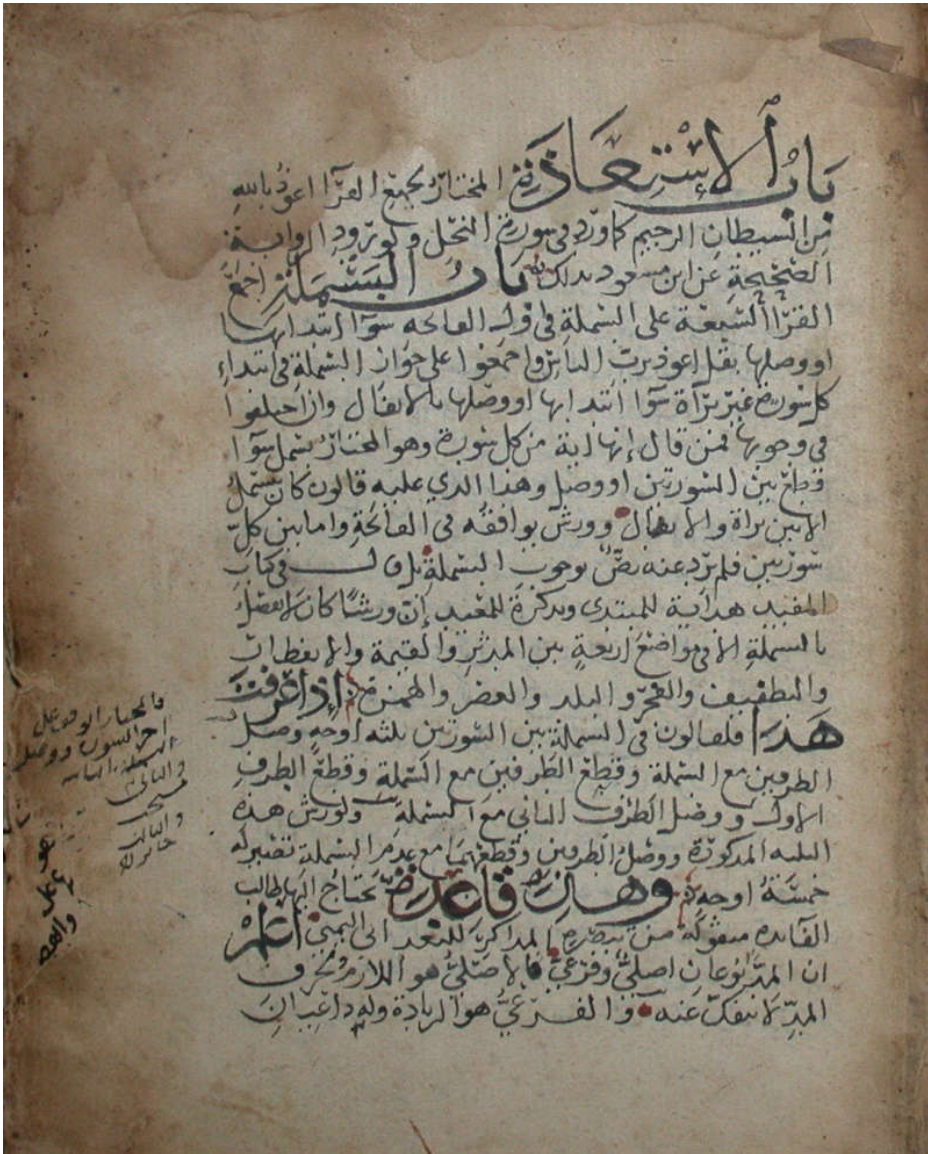 باب الاستعاذة المختار لجميع القرا اعوذ بالله
من الشيطان الرجيم كما ورد في سورة النحل ولورود الرواية
الصحيحة عن ابن مسعود بذلك باب البسملة اجمع
القرا السبعة على البسملة في اول الفاتحة سوا ابتدا بها
او وصلها بقل اعوذ برب الناس واجمعوا على جواز البسملة في ابتداء
كل سورة غير براة سوا ابتدا بها او وصلها بالانفال وان اختلفوا
في وجوبها فمن قال إنها اية من كل سورة وهو المختار بسمل سوا
قطع بين السورتين او وصل وهذا الذي عليه قالون كان يبسمل
الا بين براة والانفال وورش يوافقه في الفاتحة واما بين كل
سورتين فلم يرد عنه نص بوجوب البسملة بل قال في كتاب
المفيد هداية للمبتدي وتذكرة للمفيد إن ورشا كان لا يفصل
بالبسملة الا في مواضع اربعة بين المدثر والقيمة والانفطار
والتطفيف والفجر والبلد والعصر والهمزة إذا عرفت
هذا فلقالون في البسملة بين السورتين ثلثه اوجه وصل
الطرفين مع البسملة وقطع الطرفين مع البسملة وقطع الطرف
الاول ووصل الطرف الثاني مع البسملة ولورش هذه
الثلثه المذكورة ووصل الطرفين وقطعهما مع عدم البسملة
خمسة اوجه وهاك قاعدة يحتاج اليها طالب
الفائدة منقولة من تبصرة المذاكر للبعداني اليمني اعلم
ان المد نوعان اصلي وفرعي فالاصلي هو اللازم لحرف
المد لا ينفك عنه والفرعي هو الزيادة وله داعيان